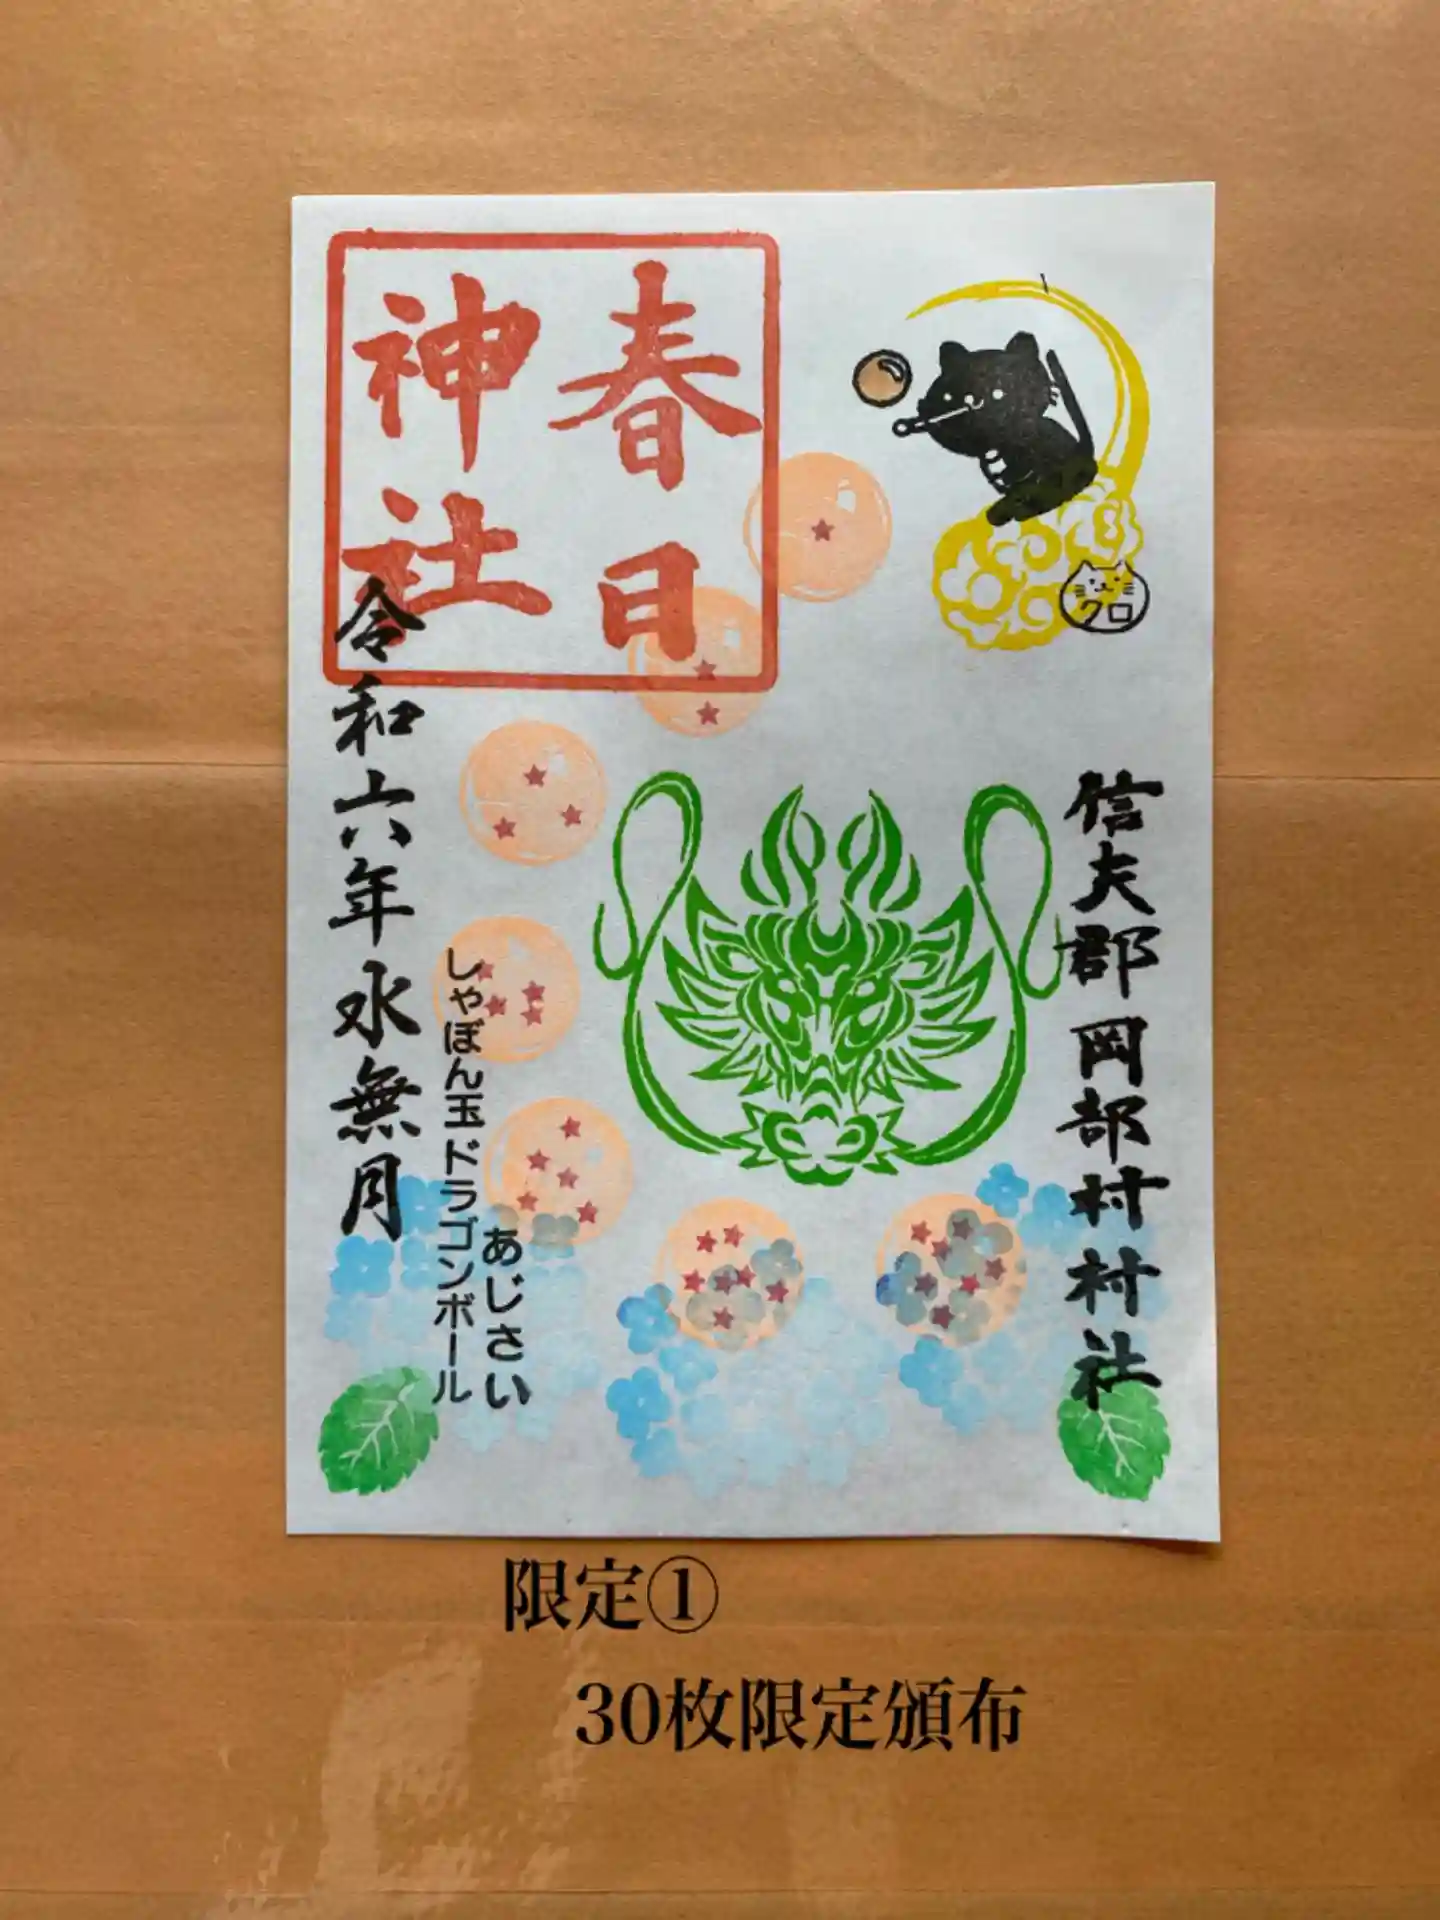 春日
神社
クロ
信夫郡岡部村村社
あじさい
しゃぼん玉ドラゴンボール
令和六年水無月
限定①
30枚限定頒布